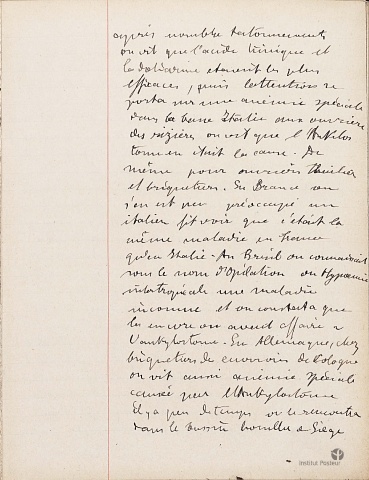 après nombre tatonnements
on vit que l'acide thimique et
la doliarine etaient les plus
efficaces, puis l'attention se
porta sur une anémie spéciale
dans la basse Italie aux ouvriers
des rizières on vit que l'Ankilos
tome en était la cause. De
même pour ouvriers tuiliers
et briquetiers. En France on
s'en est peu préoccupé un
italien fit voir que c'était la
même maladie en France
qu'en Italie - Au Brésil on connaissait
sous le nom d'Opilation ou Hypoémie
intertropicale une maladie
inconnue et on constata que
là encore on avait affaire a
l'ankylostome. En Allemagne, chez
briquetiers de environs de Cologne
on vit aussi anémie spéciale
causée par l'Ankylostome
Il y a peu de temps on le rencontra
dans le bassin houiller de Liège
Institut Pasteur